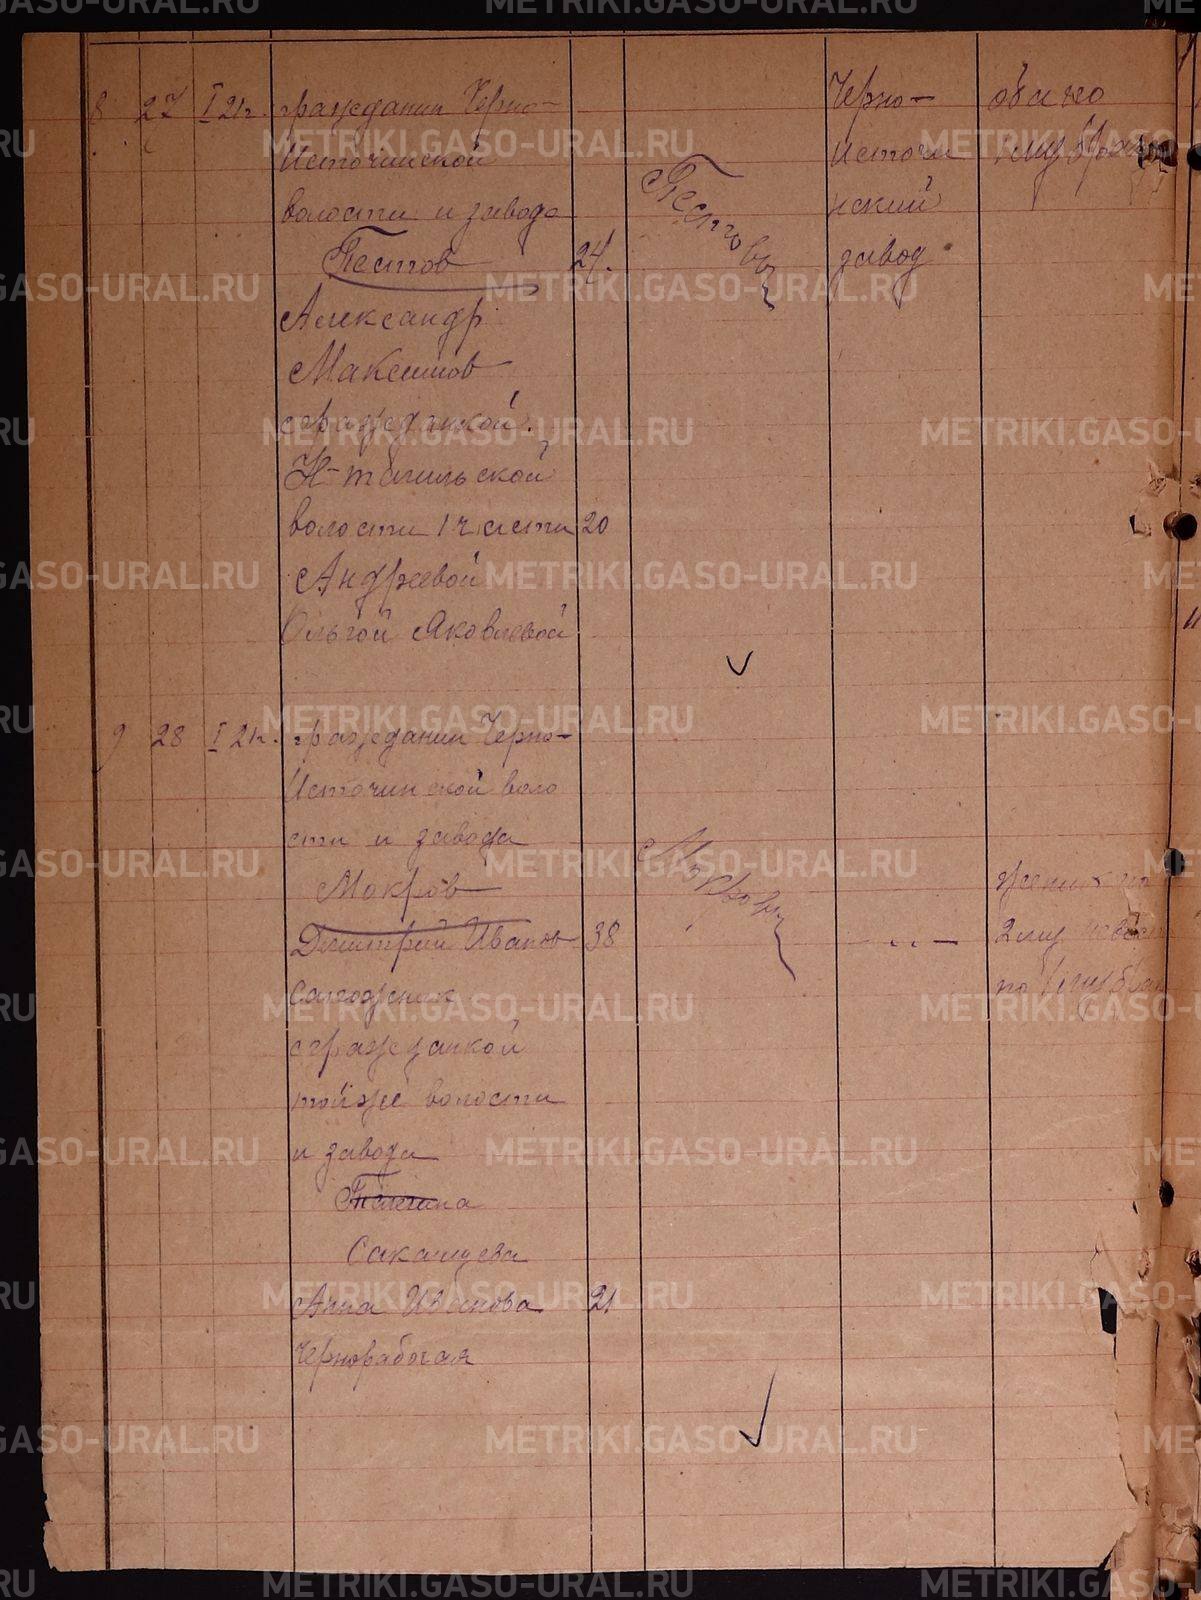 8 27 I 21г. гражданин Черно-
Источинской
волости и завода
Пестов 24.
Александр
Максимов
с гражданкой
Н-тагильской
волости 1 части 20
Андреевой
Ольгой Яковлевой
Пестовы
Черно-
Источи
нский
завод
оба по
1 му браку
9 28 I 21г. гражданин Черно-
Источинской воло
сти и завода
Мокров
Дмитрий Иванов 38
Сапожник
с гражданкой
тойже волости
и завода
Саканцева
Анна Иванова 21
Чернорабочая
Мокровы
- ,, -
жених по
2 му невест
по 1 му брак
METRIKI.GASO-URAL.RU